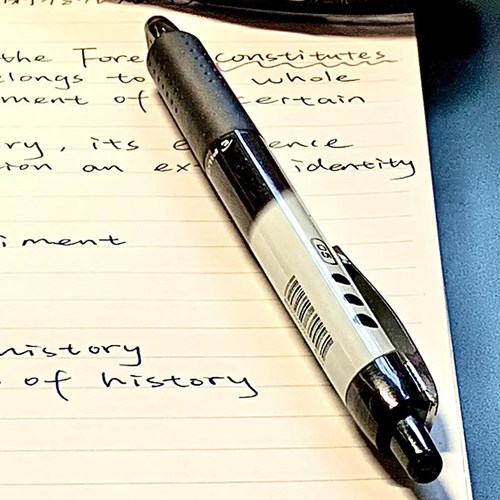 the Fore constitutes
elongs to whole
ment of certain
ry, its e ence
ion an ex identity
iment
history
of history
05